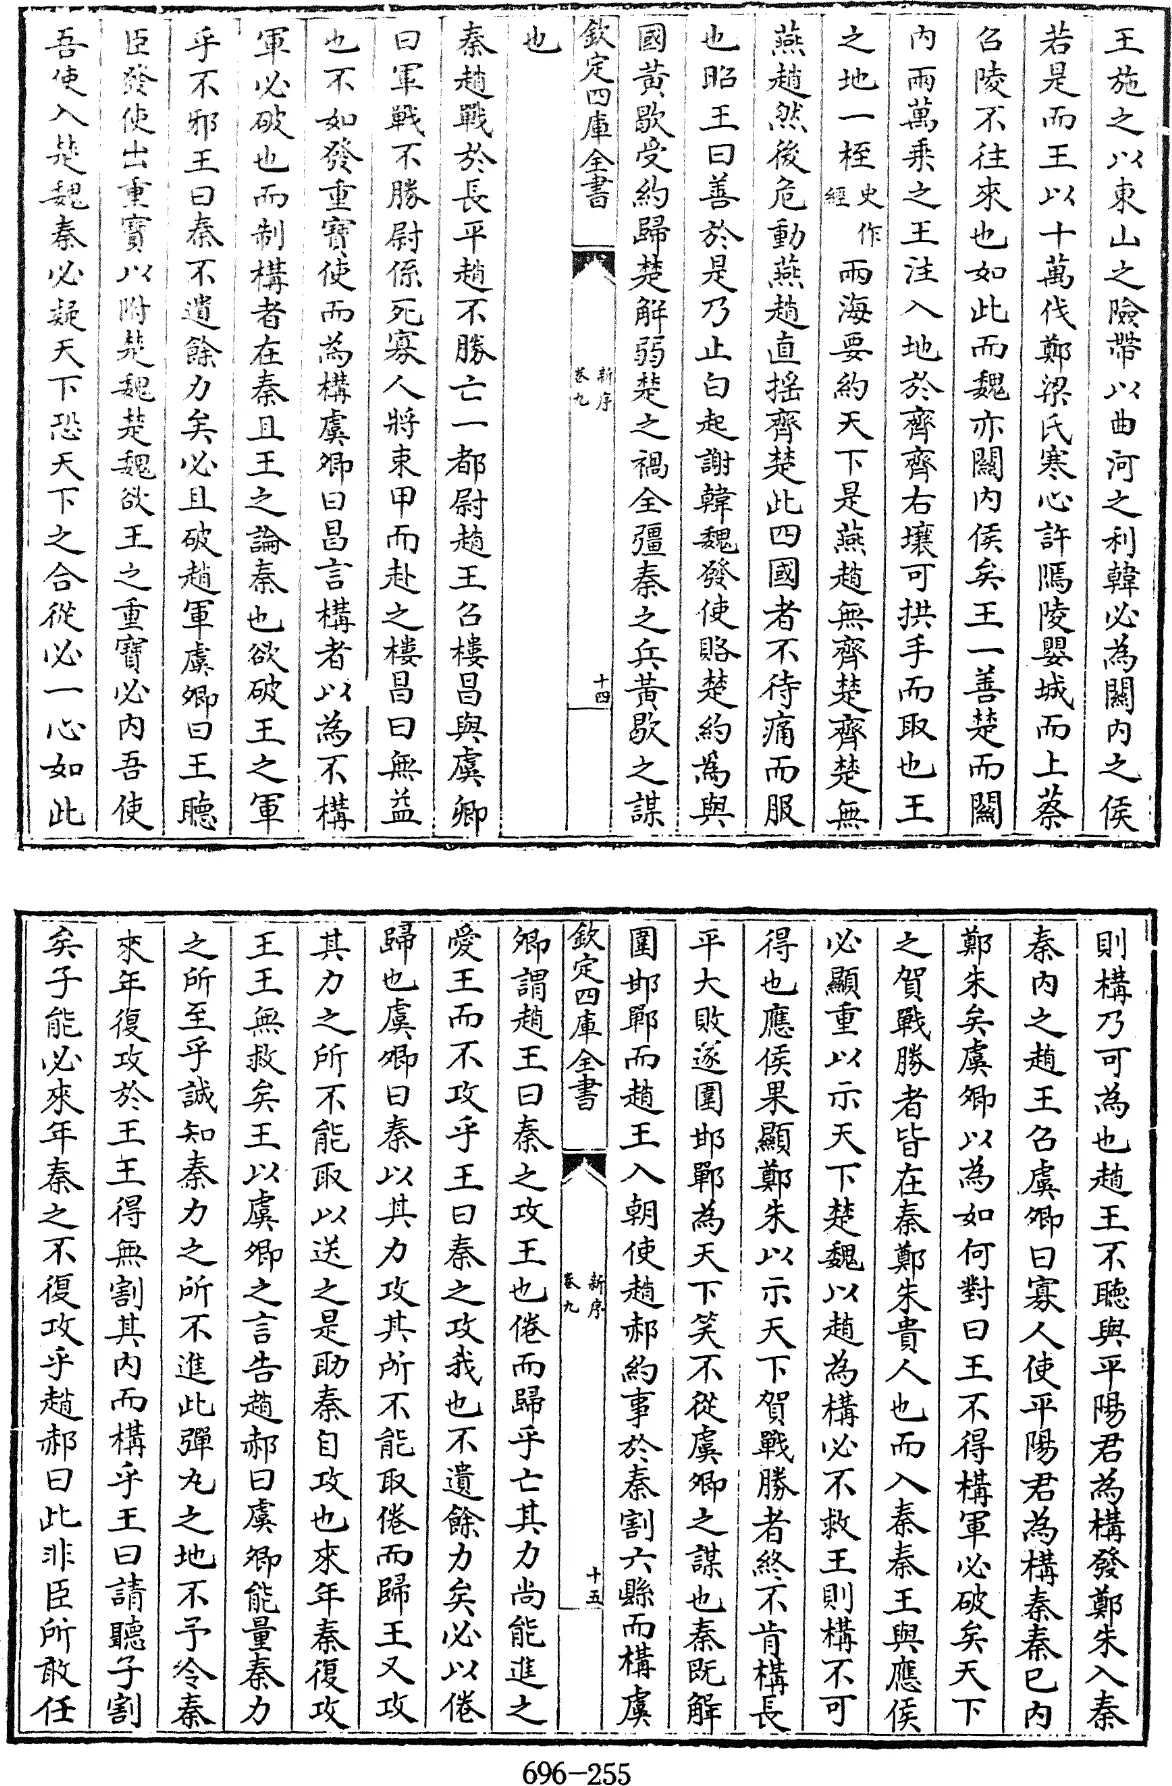 王施之以東山之險帶以曲河之利韓必為關内之侯
若是而王以十萬伐鄭梁氏寒心許鄢陵嬰城而上蔡
召陵不往來也如此而魏亦關内侯矣王一善楚而關
内兩萬乘之王注入地於齊齊右壤可拱手而取也王
之地一桎史作經兩海要約天下是燕趙無齊楚齊楚無
燕趙然後危動燕趙直揺齊楚此四國者不待痛而服
也昭王曰善於是乃止白起謝韓魏發使賂楚約為與
國黄歇受約歸楚解弱楚之禍全彊秦之兵黄歇之謀
欽定四庫全書 新序 卷九 十四
也
秦趙戰於長平趙不勝亡一都尉趙王召樓昌與虞卿
曰軍戰不勝尉係死寡人將束甲而赴之樓昌曰無益
也不如發重寶使而為構虞卿曰昌言構者以為不構
軍必破也而制構者在秦且王之論秦也欲破王之軍
乎不邪王曰秦不遺餘力矣必且破趙軍虞卿曰王聽
臣發使出重寶以附楚魏楚魏欲王之重寶必内吾使
吾使入楚魏秦必疑天下恐天下之合從必一心如此
則構乃可為也趙王不聽與平陽君為構發鄭朱入秦
秦内之趙王召虞卿曰寡人使平陽君為構秦秦已内
鄭朱矣虞卿以為如何對曰王不得構軍必破矣天下
之賀戰勝者皆在秦鄭朱貴人也而入秦秦王與應侯
必顯重以示天下楚魏以趙為構必不救王則構不可
得也應侯果顯鄭朱以示天下賀戰勝者終不肯構長
平大敗遂圍邯鄲為天下笑不從虞卿之謀也秦既解
圍邯鄲而趙王入朝使趙郝約事於秦割六縣而構虞
欽定四庫全書 新序 卷九 十五
卿謂趙王曰秦之攻王也倦而歸乎亡其力尚能進之
愛王而不攻乎王曰秦之攻我也不遺餘力矣必以倦
歸也虞卿曰秦以其力攻其所不能取倦而歸王又攻
其力之所不能取以送之是助秦自攻也來年秦復攻
王王無救矣王以虞卿之言告趙郝曰虞卿能量秦力
之所至乎誠知秦力之所不進此彈丸之地不予令秦
來年復攻於王王得無割其内而構乎王曰請聽子割
矣子能必來年秦之不復攻乎趙郝曰此非臣所敢任
696-255